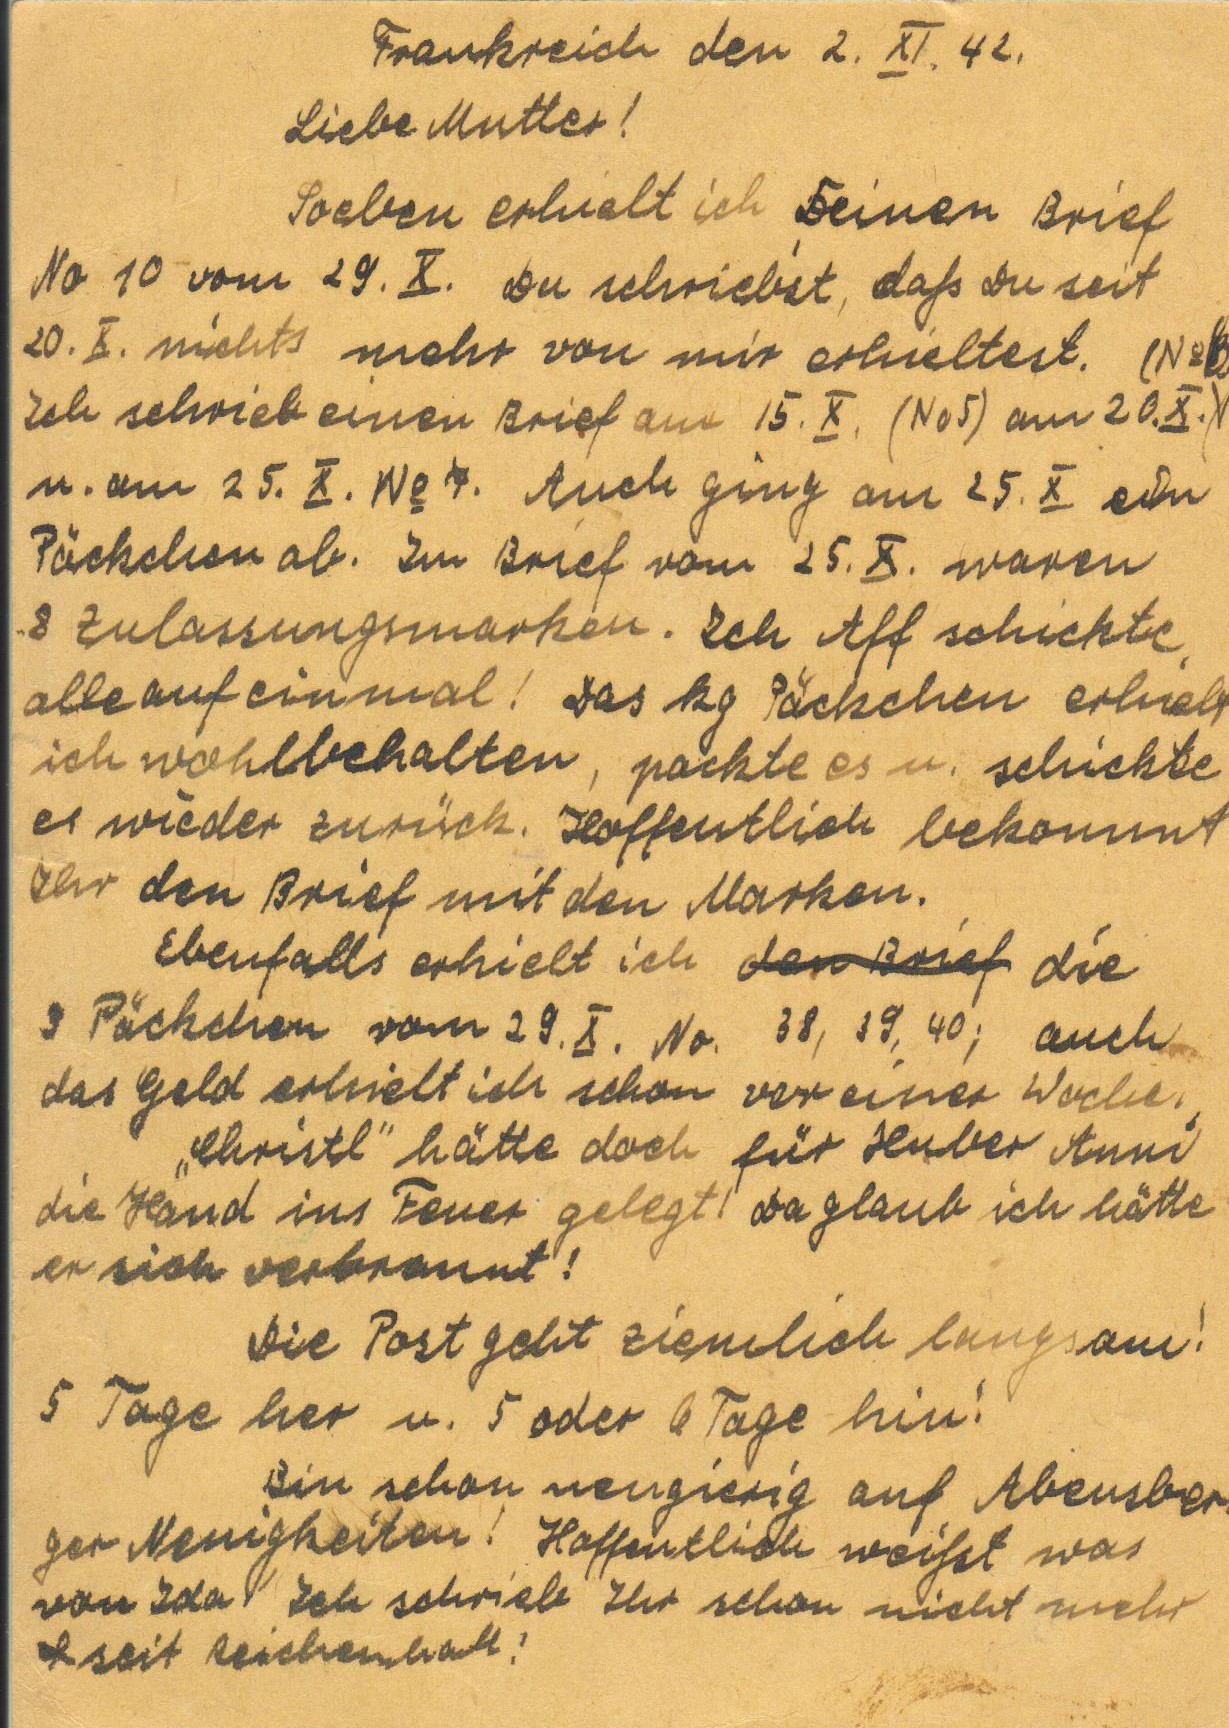 Frankreich den 2. XI. 42.
Liebe Mutter!
Soeben erhielt ich Deinen Brief
No 10 vom 29. X. Du schriebst, daß Du seit
20. X. nichts mehr von mir erhieltest. (No
Ich schrieb einen Brief am 15. X. (No5) am 20. X.)
u. am 25. X. No 7. Auch ging am 25. X ein
Päckchen ab. Im Brief vom 25. X. waren
8 Zulassungsmarken. Ich Aff schickte
alle auf einmal! Das kg Päckchen erhielt
ich wohlbehalten, packte es u. schickte
es wieder zurück. Hoffentlich bekommt
Ihr den Brief mit den Marken.
Ebenfalls erhielt ich den Brief die
3 Päckchen vom 29. X. No. 38, 39, 40; auch
das Geld erhielt ich schon vor einer Woche.
„Christl" hätte doch für Huber Anni
die Hand ins Feuer gelegt! Da glaub ich hätte
er sich verbrannt!
Die Post geht ziemlich langsam!
5 Tage her u. 5 oder 6 Tage hin!
Bin schon neugierig auf Abensber-
ger Neuigkeiten! Hoffentlich weißt was
von Ida! Ich schrieb Ihr schon nicht mehr
seit Reichenhall!